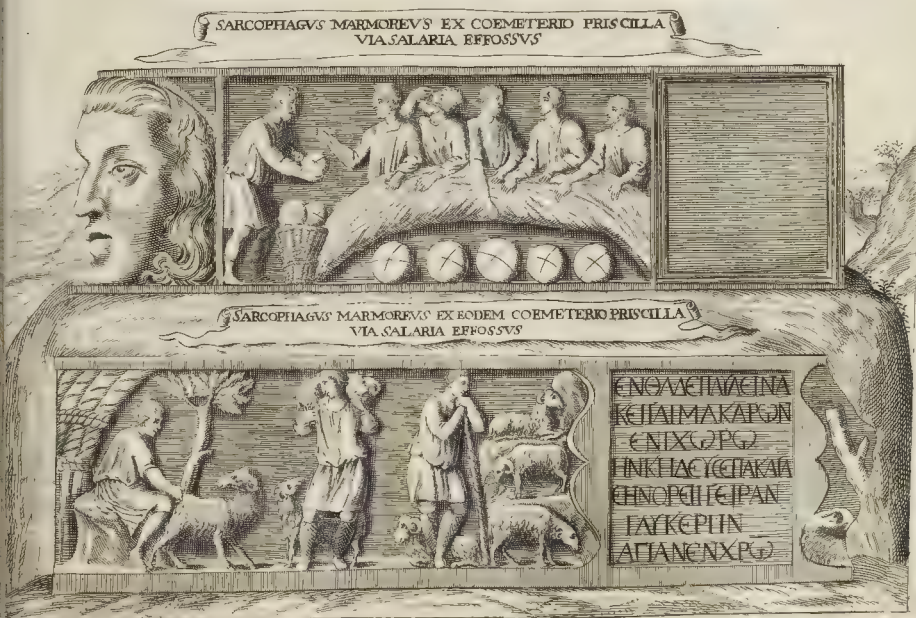 SARCOPHAGVS MARMOREVS EX COEMETERIO PRISCILLA
VIA SALARIA EFFOSSVS
SARCOPHAGVS MARMOREVS EX EODEM COEMETERIO PRISCILLA
VIA SALARIA EFFOSSVS
ΕΝΘΑΔΕΠΑΥΛΕΙΝΑ
ΚΕΙΤΑΙΜΑΚΑΡωΝ
ΕΝΙΧωΡω
ΗΝΚΗΔΕΥϹΕΠΑΚΑΤΑ
ΕΗΝΘΡΕΠΤΕΙΡΑΝ
ΓΛΥΚΕΡΗΝ
ΑΓΙΑΝΕΝΧΡω